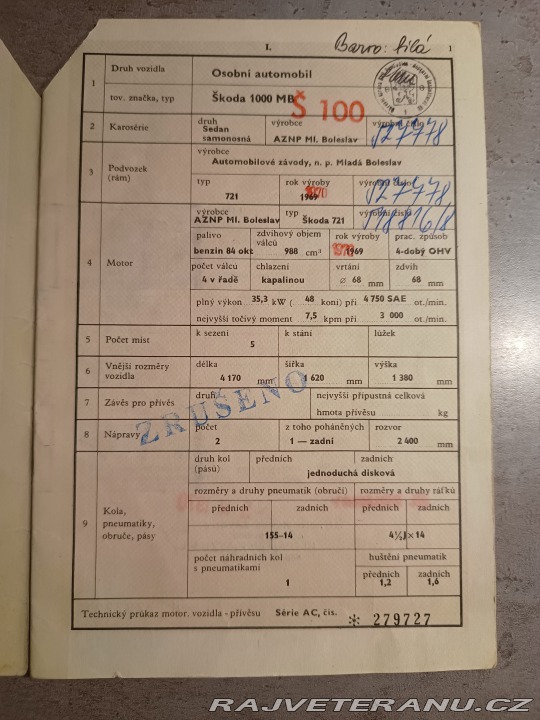 I.
Barva: bílá
1
1
Druh vozidla
Osobní automobil
tov. značka, typ
Škoda 1000 MB
Š 100
2
Karosérie
druh
Sedan
samonosná
výrobce
AZNP Ml. Boleslav
výrobní číslo
527778
3
Podvozek
(rám)
výrobce
Automobilové závody, n. p. Mladá Boleslav
typ
721
rok výroby
1969
1970
výrobní číslo
527778
4
Motor
výrobce
AZNP Ml. Boleslav
typ
Škoda 721
výrobní číslo
palivo
benzin 84 okt
zdvihový objem
válců
988 cm³
rok výroby
1969
prac. způsob
4-dobý OHV
počet válců
4 v řadě
chlazení
kapalinou
vrtání
⌀ 68 mm
zdvih
68 mm
plný výkon 35,3 kW ( 48 koní) při 4 750 SAE ot./min.
největší točivý moment 7,5 kpm při 3 000 ot./min.
5
Počet míst
k sezení
5
k stání
lůžek
6
Vnější rozměry
vozidla
délka
4 170 mm
šířka
1 620 mm
výška
1 380 mm
ZRUŠENO
7
Závěs pro přívěs
druh
nejvyšší přípustná celková
hmota přívěsu kg
8
Nápravy
počet
2
z toho poháněných
1 — zadní
rozvor
2 400 mm
9
Kola,
pneumatiky,
obruče, pásy
druh kol
(pásů)
předních
zadních
jednoduchá disková
rozměry a druhy pneumatik (obručí)
rozměry a druhy ráfků
předních
zadních
předních
zadních
155–14
4½J × 14
počet náhradních kol
s pneumatikami
1
huštění pneumatik
předních
1,2
zadních
1,6
Technický průkaz motor. vozidla - přívěsu Série AC, čís. ✻ 279727
RAJVETERANU.CZ